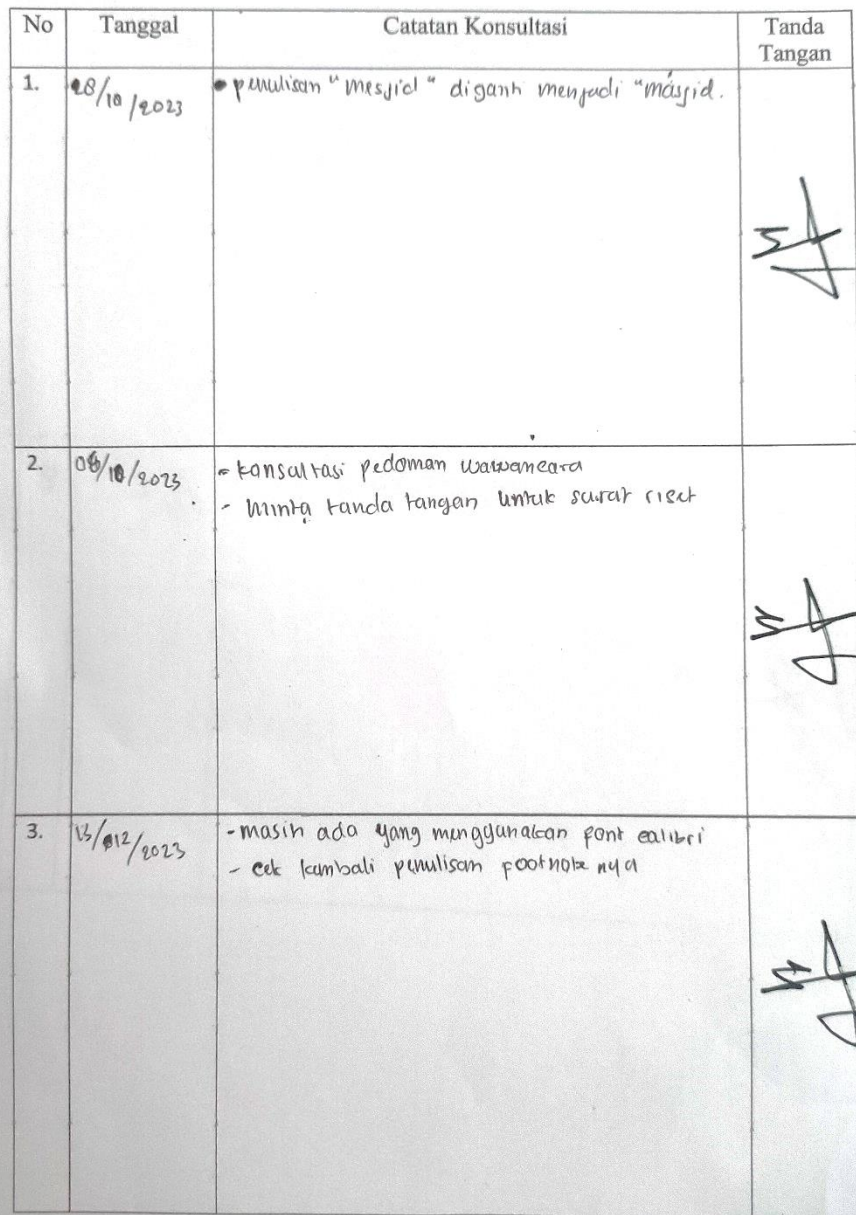 No Tanggal Catatan Konsultasi Tanda Tangan
1. 28/10/2023 • penulisan "mesjid" diganti menjadi "masjid.
2. 08/10/2023 - konsultasi pedoman wawancara
- minta tanda tangan untuk surat riset
3. 13/12/2023 - masih ada yang menggunakan font calibri
- cek kembali penulisan footnote nya